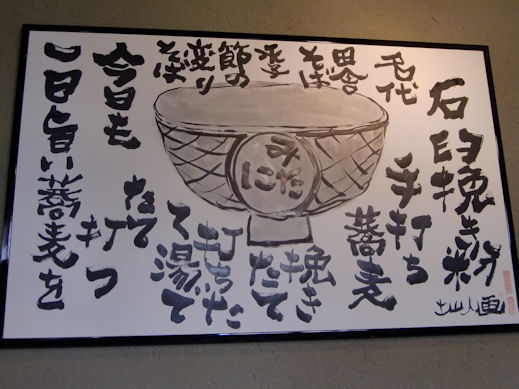 石臼挽き粉
手打ち
蕎麦
名代
田舎
そば
季
節の
変り
そば
みたに
挽き
たて
打ちた
て湯て
たて
今日も
一日旨い蕎麦を
打つ
土山人画